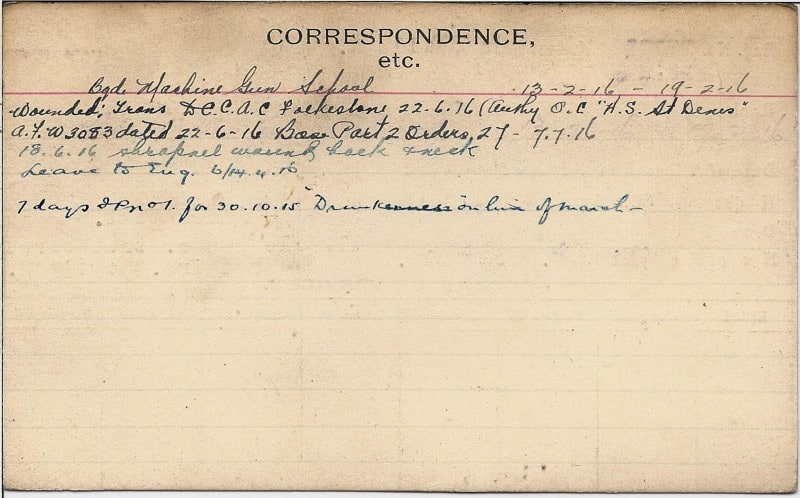 CORRESPONDENCE,
etc.
Bgde Machine Gun School 13-2-16 - 19-2-16
Wounded, Trans D.C.C.A.C Folkestone 22.6.16 (Authy O.C "H.S. St Denis"
A.F.W 3083 dated 22-6-16 Base Part 2 Orders, 27 - 7.7.16
18.6.16 shrapnel wound back & neck
Leave to Eng. 6/14.4.16
7 days F.P. no 1. for 30.10.15 Drunkenness on line of march -